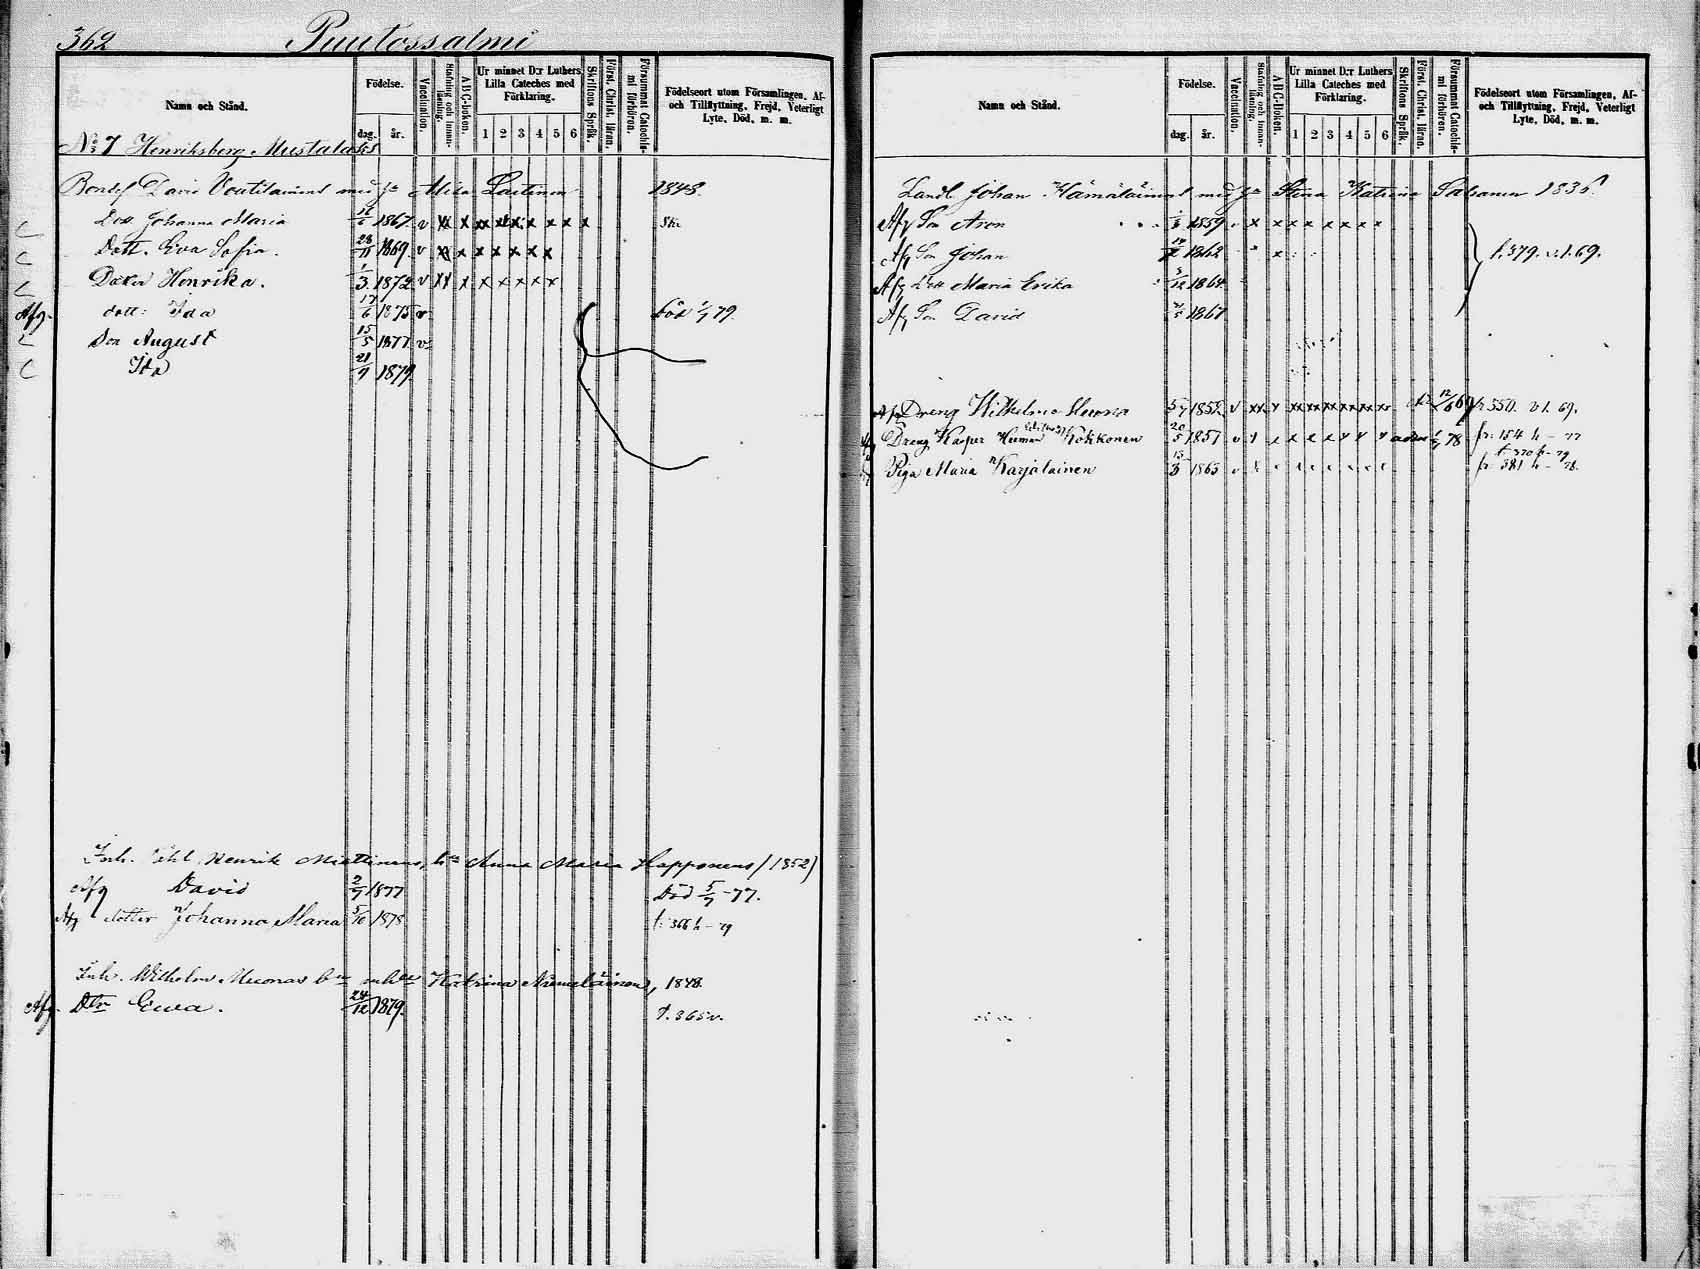 362 Puutossalmi
Namn och Stånd.
Födelse.
dag. år.
Vaccination.
Stafning och Innanläsning.
ABC-boken.
Ur minnet D:r Luthers Lilla Cateches med Förklaring.
1 2 3 4 5 6
Skriftens Språk.
Först. Christ. läran.
Försummat Catechismi förhören.
Födelseort utom Församlingen, Af- och Tillflyttning, Frejd, Veterligt Lyte, Död, m. m.
No 7 Henriksberg Mustalaks
David Voutilainens med Laitinen 1848.
Dott Johanna Maria 1867 v x x x x x x x x x
Dott. Eva Sofia. 28/11 1869 v x x x x x x x
Henrika. 1/3 1872 v x x x x x x x x
Afg. dott: Ida 17/6 1875 v Död 79
Son August 15/5 1877 v
Ida 21/9 1879
Inh. Henrik Miettinens, Anna Maria Happonens (1852)
Afg David 2/7 1877 Död 5/7 -77.
Afg dotter Johanna Maria 5/10 1878 t: 366 h - 79
Inh. Wilhelm Muonas Katrina Niemeläinen, 1848
Afg. Dtr Ewa. 24/12 1879. t. 365 v.
Namn och Stånd.
Födelse.
dag. år.
Vaccination.
Stafning och Innanläsning.
ABC-boken.
Ur minnet D:r Luthers Lilla Cateches med Förklaring.
1 2 3 4 5 6
Skriftens Språk.
Först. Christ. läran.
Försummat Catechismi förhören.
Födelseort utom Församlingen, Af- och Tillflyttning, Frejd, Veterligt Lyte, Död, m. m.
Johan Hämäläinens med Stina Katrina 1836
Afg Son Aron 1859 x x x x x x x
Afg Son Johan 1862 x t. 379. v. 1. 69.
Afg Dott Maria Erika 1864
Afg Son David 1867
Afg Dreng Wilhelm Muona 5/7 1852 v x x x x x x x x fr 350. v 1. 69.
Dreng Kasper Herman Kokkonen 20/5 1857 v x x x x x x 78 fr: 154 h - 77
t 370 h - 79
Piga Maria Karjalainen 15/3 1865 v fr. 381 h - 78.